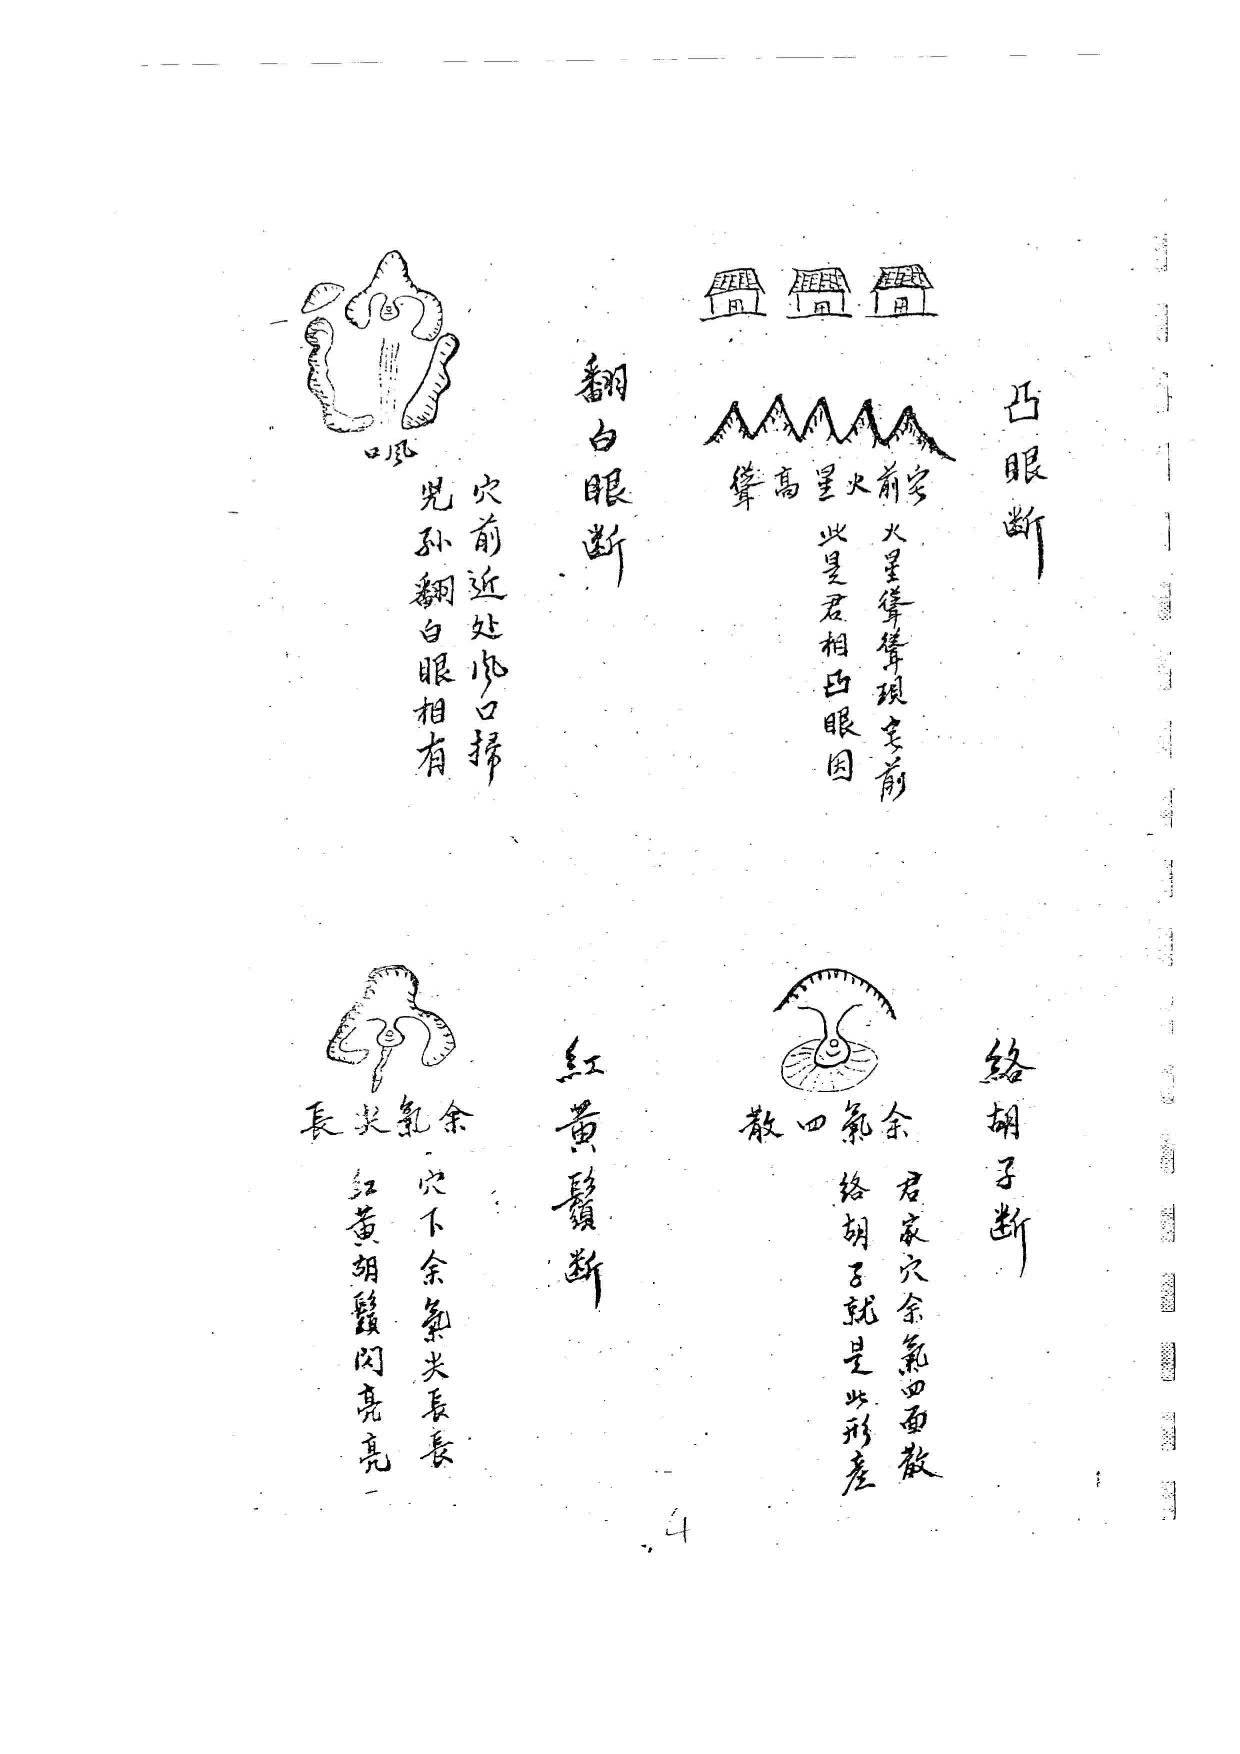 凸眼断
宅前火星高聳
火星聳聳現宅前
此是君相凸眼因
翻白眼断
風口
穴前近处风口掃
児孙翻白眼相有
絡胡子断
余氣四散
君家穴余氣四面散
络胡子就是此形產
紅黄鬚断
余氣尖長
穴下余氣尖長長
红黄胡鬚閃亮亮
4